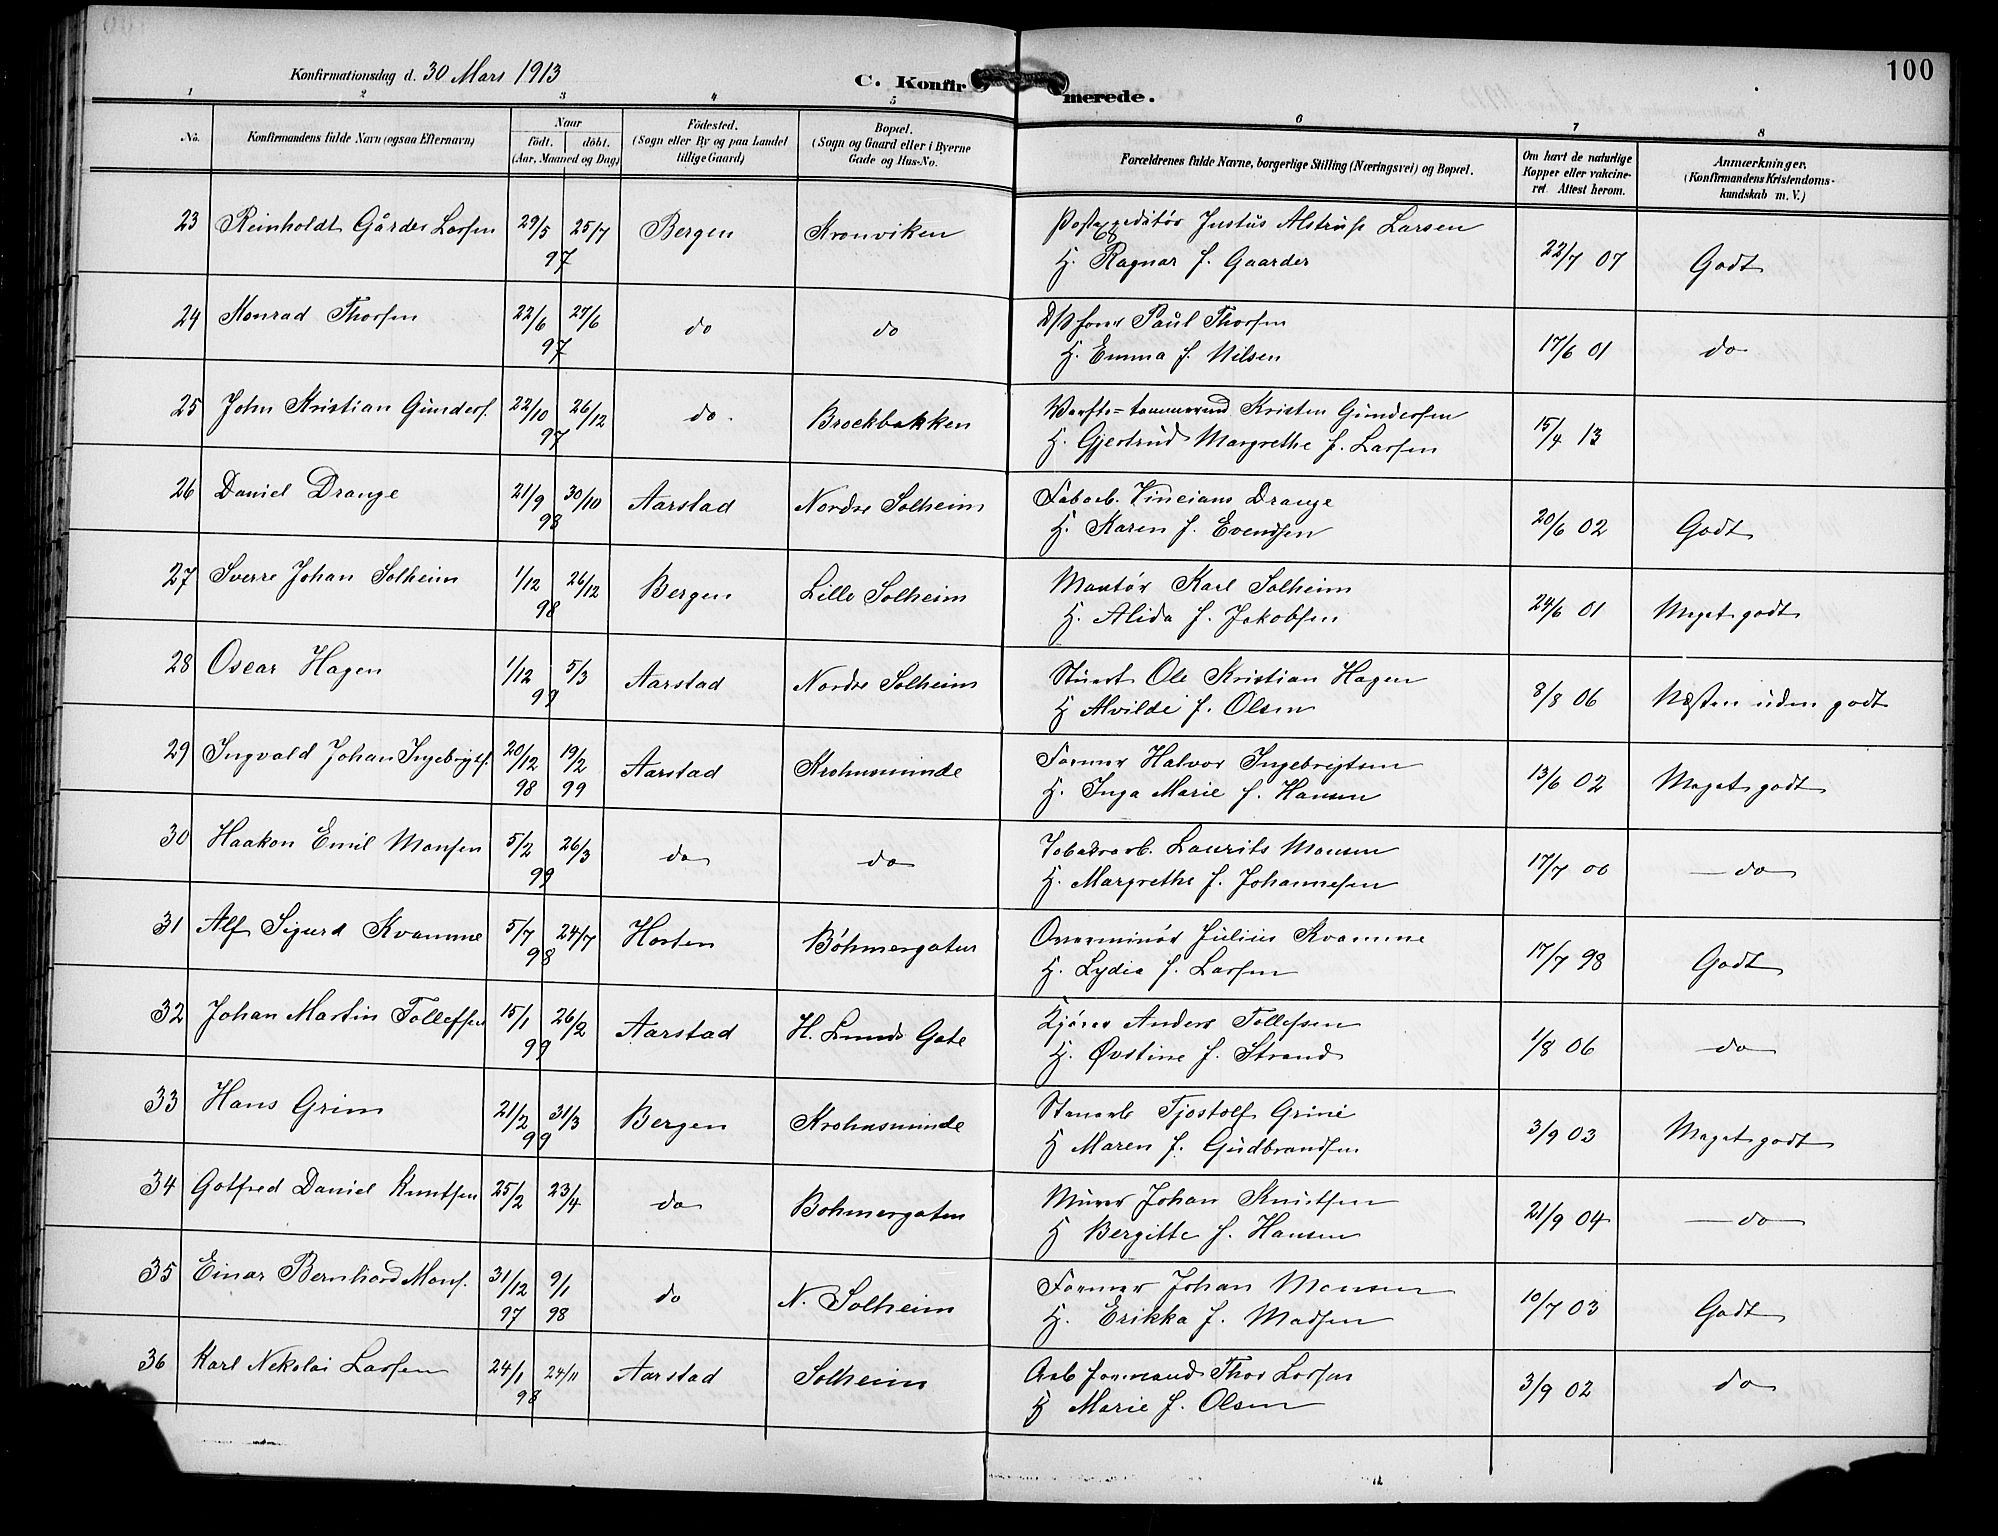 100
Konfirmationsdag d. 30 Mars 1913
C. Konfirmerede.
1 2 3 4 5 6 7 8
No. Konfirmandens fulde Navn (ogsaa Efternavn) Naar født. døbt. (Aar, Maaned og Dag) Fødested. (Sogn eller By og paa Landet tillige Gaard) Bopæl. (Sogn og Gaard eller i Byerne Gade og Hus-No. Forældrenes fulde Navne, borgerlige Stilling (Næringsvei) og Bopæl. Om havt de naturlige Kopper eller vakcineret. Attest herom. Anmærkninger. (Konfirmandens Kristendomskundskab m. V.)
23 Reinholdt Gårder Larsen 29/5 25/7 97 Bergen Kronviken Postexpeditør Justus Alstrup Larsen
H. Ragnar f. Gaarder 22/7 07 Godt
24 Konrad Thorsen 22/6 27/6 97 do do Paul Thorsen
H. Emma f. Nilsen 17/6 01 do
25 John Kristian Gunders. 22/10 26/12 97 do Brockbakken Kristen Gundersen
H. Gjertrud Margrethe f. Larsen 15/4 13
26 Daniel Drange 21/9 30/10 98 Aarstad Nordre Solheim Fabarb. Drange
H. Karen f. Evensen 20/6 02 Godt
27 Sverre Johan Solheim 1/12 26/12 98 Bergen Lille Solheim Montør Karl Solheim
H. Alida f. Jakobsen 24/6 01 Meget godt
28 Oscar Hagen 1/12 5/3 99 Aarstad Nordre Solheim Stuert Ole Kristian Hagen
H Alvilde f. Olsen 8/8 06 Næsten uden godt
29 Ingvald Johan Ingebrigts. 20/12 98 19/2 99 Aarstad Krohnsminde Former Halvor Ingebrigtsen
H. Inga Marie f. Hansen 13/6 02 Meget godt
30 Haakon Emil Monsen 5/2 26/3 99 do do Laurits Monsen
H. Margrethe f. Johannesen 17/7 00 do
31 Alf Sigurd Kvamme 5/7 24/7 98 Horten Böhmergatur Overminør Julius Kvamme
H. Lydia f. Larsen 17/7 98 Godt
32 Johan Martin Tollefsen 15/1 26/2 99 Aarstad H. Lunds Gate Kjører Anders Tollefsen
H. Øvstine f. Strand 1/8 06 do
33 Hans Grim 21/2 31/3 99 Bergen Krohnsminde Stenarb Tjostolf Grine
H Maren f. Gudbrandsen 3/9 03 Meget godt
34 Gotfred Daniel Knutsen 25/2 23/4 do Bohmergaten Murer Johan Knutsen
H Bergitte f. Hansen 21/9 04 do
35 Einar Bernhard Mons. 31/12 97 9/1 98 do N. Solheim Former Johan Monsen
H. Erikka f. Madsen 10/7 03 Godt
36 Karl Nekolai Larsen 24/1 24/11 98 Aarstad Solheim Arb formand Thor Larsen
H Marie f. Olsen 3/9 02 do